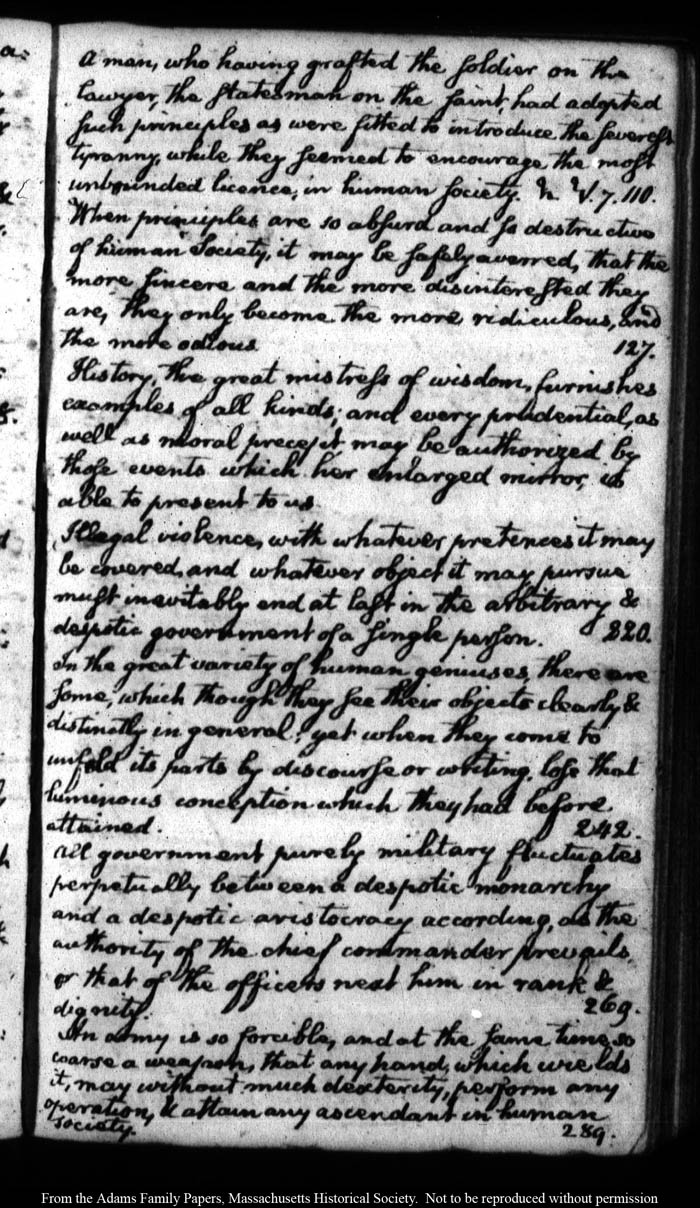 A man, who having grafted the soldier on the
lawyer, the statesman on the saint, had adopted
such principles as were fitted to introduce the severest
tyranny, while they seemed to encourage the most
unbounded licence, in human society. V. 7. 110.
When principles are so absurd and so destructive
of human Society, it may be safely averred, that the
more sincere and the more disinterested they
are, they only become the more ridiculous, and
the more odious 127.
History, the great mistress of wisdom, furnishes
examples of all kinds; and every prudential, as
well as moral precept may be authorized by
those events which her enlarged mirror, is
able to present to us
Illegal violence, with whatever pretences it may
be covered, and whatever object it may pursue
must inevitably end at last in the arbitrary &
despotic government of a single person. 220.
In the great variety of human geniuses, there are
some, which though they see their objects clearly &
distinctly in general; yet when they come to
unfold its parts by discourse or writing, lose that
luminous conception which they had before
attained. 242.
All government purely military fluctuates
perpetually between a despotic monarchy
and a despotic aristocracy according, as the
authority of the chief commander prevails,
or that of the officers next him in rank &
dignity. 269.
An army is so forcible, and at the same time so
coarse a weapon, that any hand, which wields
it, may without much dexterity, perform any
operation, & attain any ascendant in human
society. 289.
From the Adams Family Papers, Massachusetts Historical Society. Not to be reproduced without permission